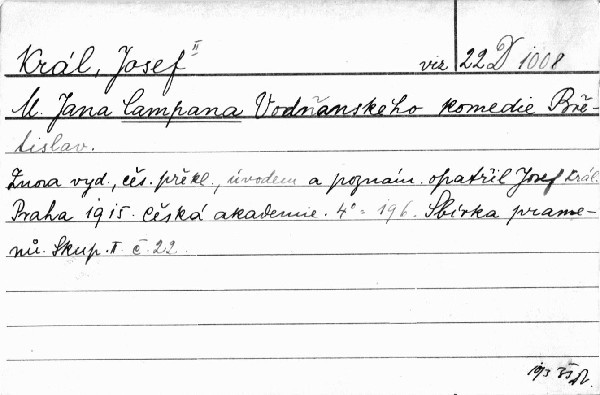 Král, Josef II viz 22 D 1008
M. Jana Campana Vodňanského komedie Bře-
tislav.
Znova vyd., čes. překl., úvodem a poznám. opatřil Josef Král.
Praha 1915. Česká akademie. 4° - 196. Sbírka prame-
nů. Skup. II č. 22.